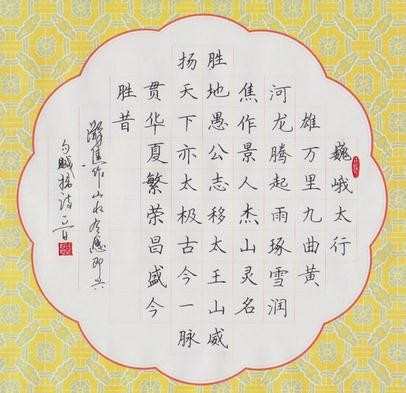 巍峨太行
雄万里九曲黄
河龙腾起雨琢雪润
焦作景人杰山灵名
胜地愚公志移太王山威
扬天下亦太极古今一脉
贯华夏繁荣昌盛今
胜昔
游焦作山水有感即兴